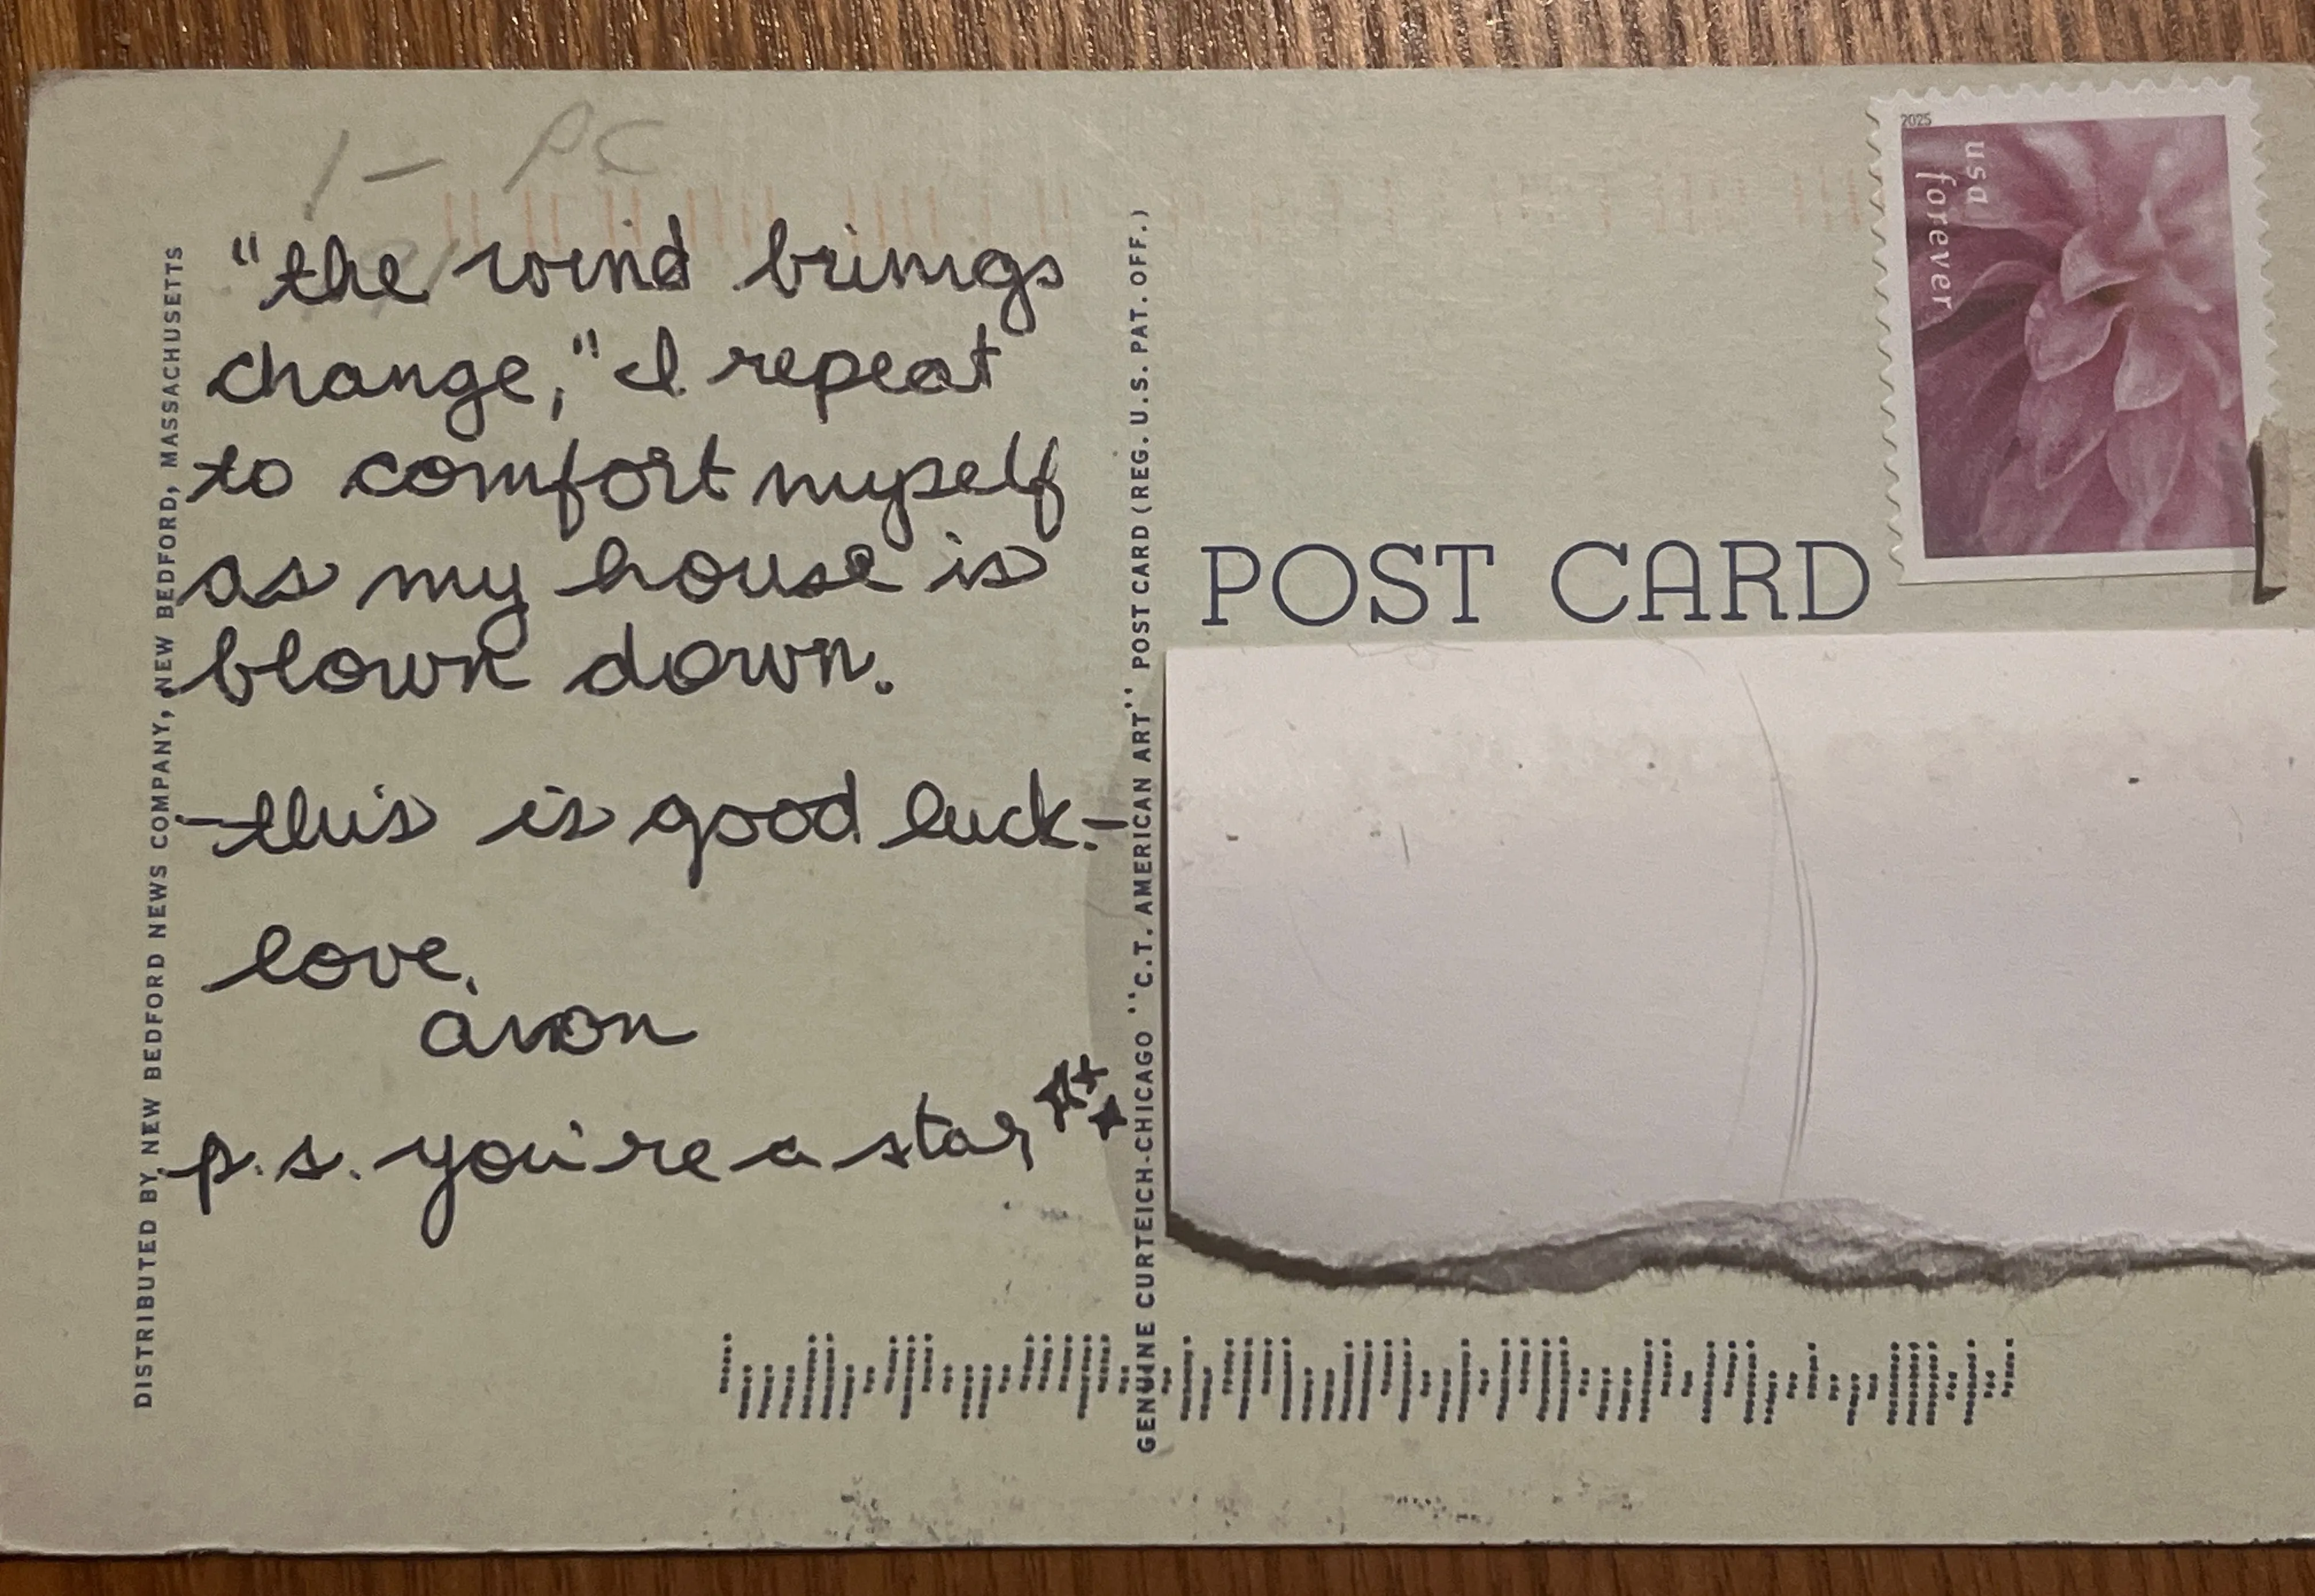 1- PC
"the wind brings
change," I repeat
to comfort myself
as my house is
blown down.
-this is good luck.-
love,
avon
p.s. you're a star
DISTRIBUTED BY NEW BEDFORD NEWS COMPANY, NEW BEDFORD, MASSACHUSETTS
GENUINE CURTEICH-CHICAGO "C.T. AMERICAN ART" POST CARD (REG. U.S. PAT. OFF.)
POST CARD
2025
usa
forever